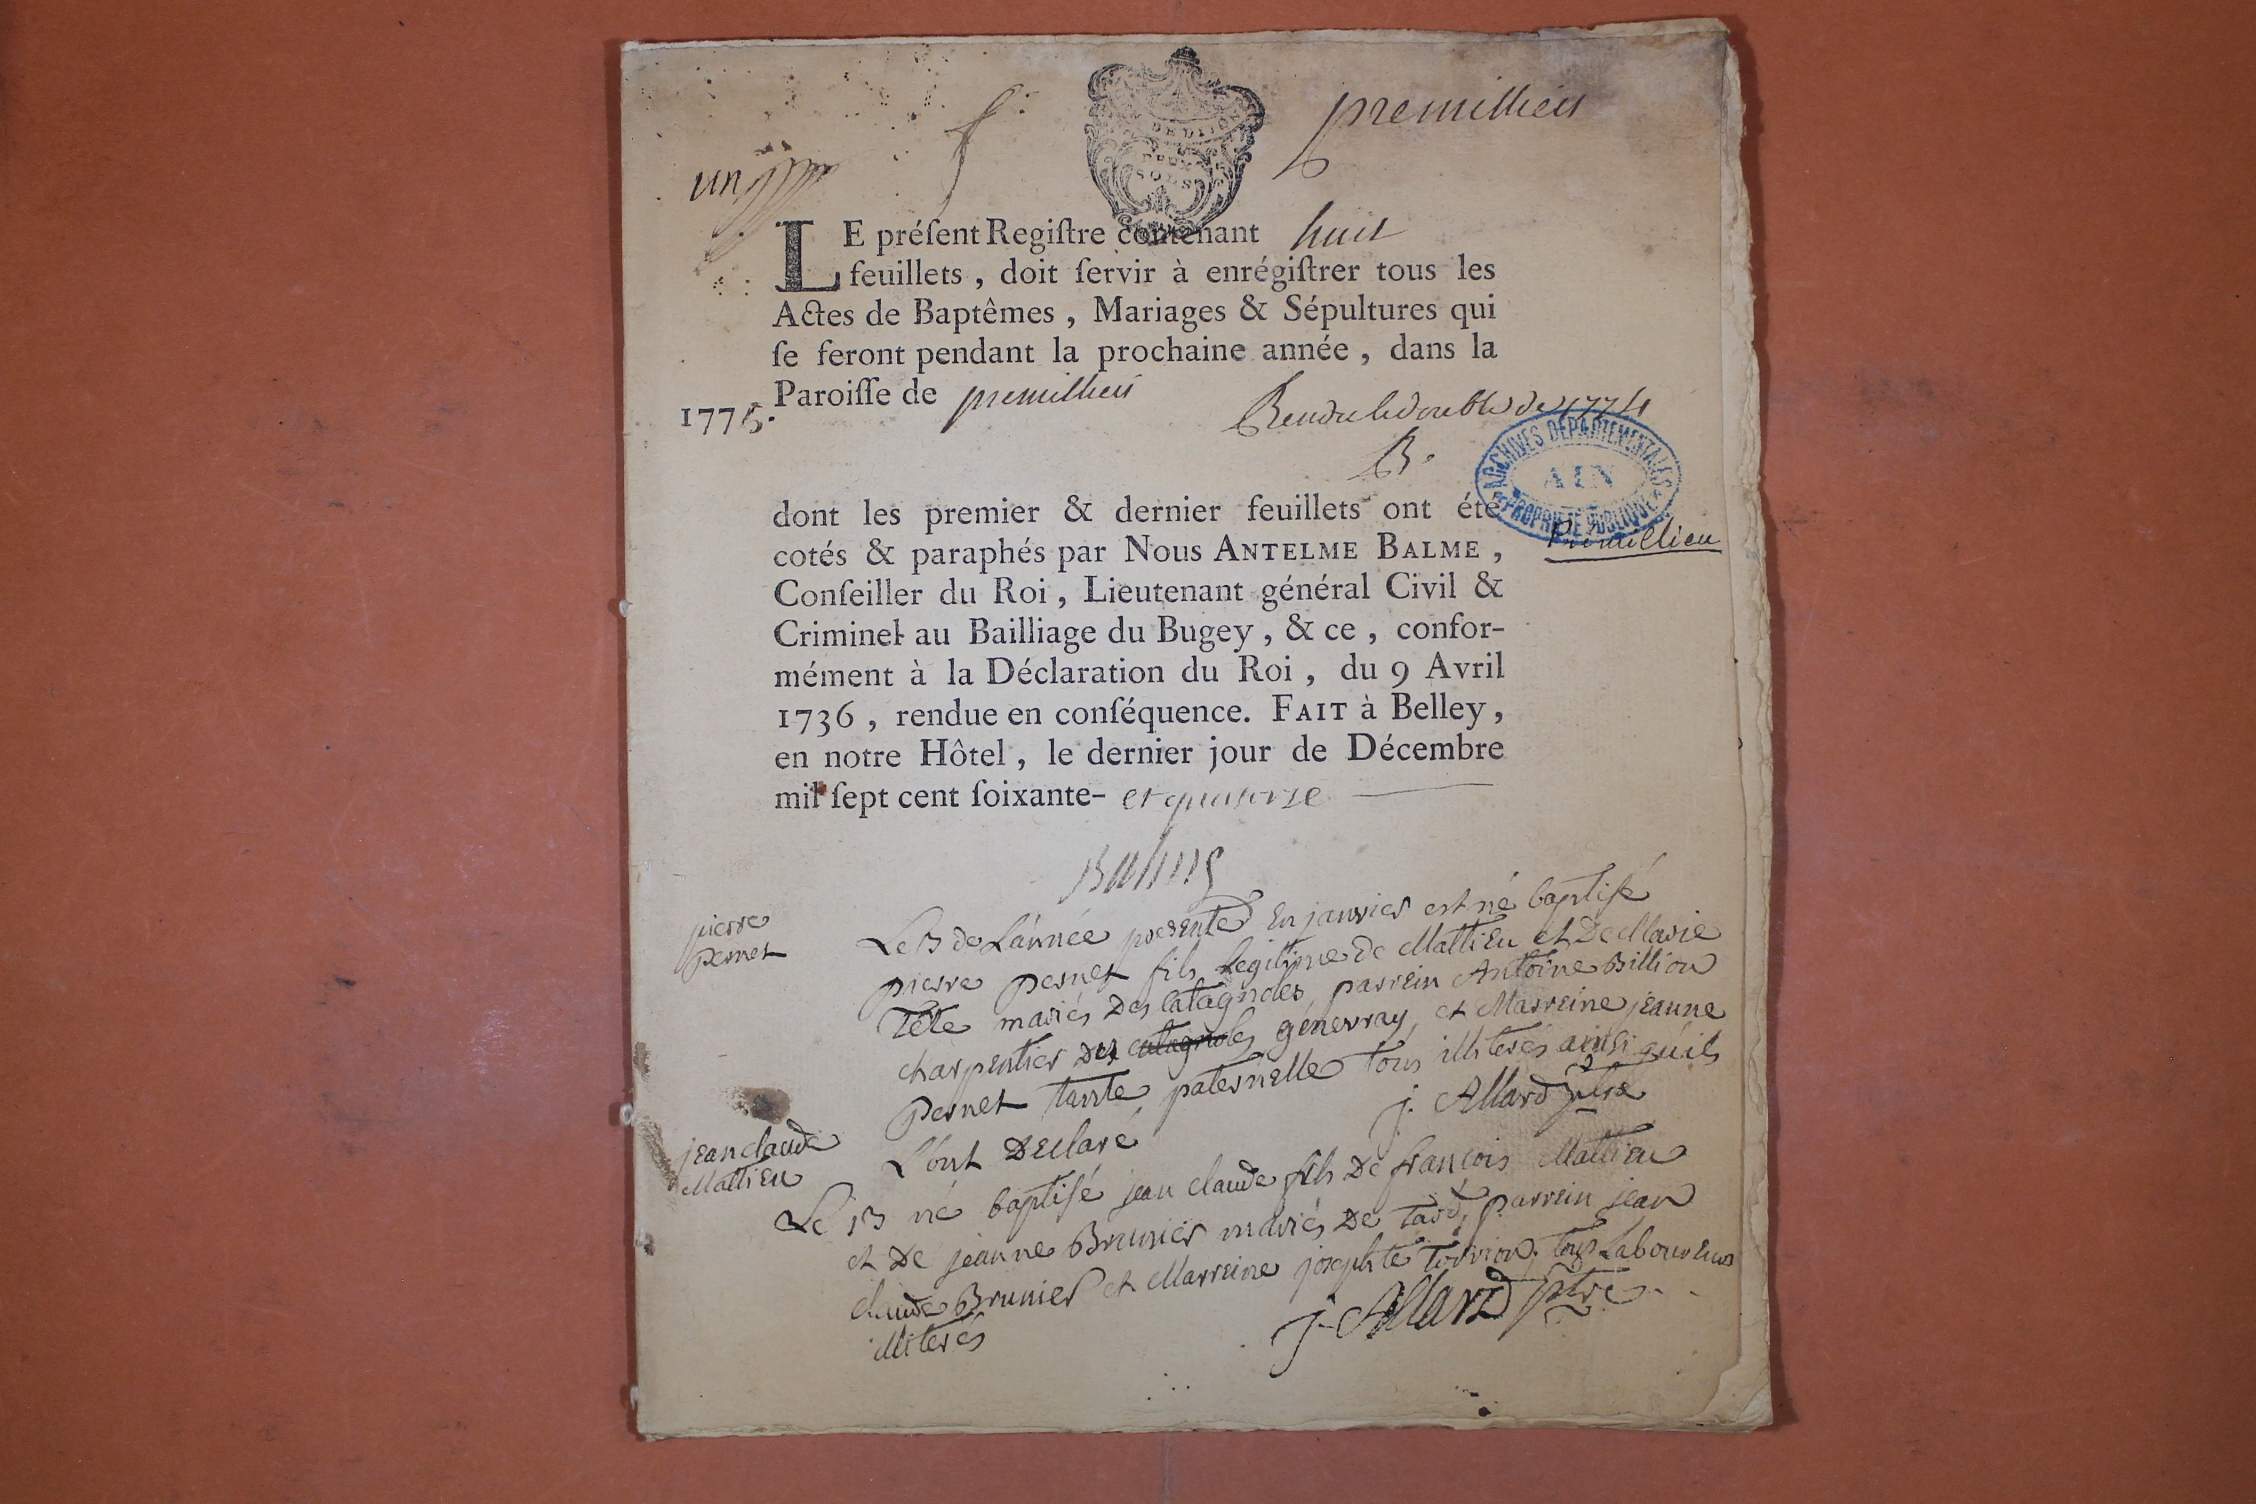 premillieu
un
GEN. DE DIJON
DEUX
SOLS
LE préſent Regiſtre contenant huit
feuillets, doit ſervir à enrégiſtrer tous les
Actes de Baptêmes, Mariages & Sépultures qui
ſe feront pendant la prochaine année, dans la
Paroiſſe de premillieu
1775.
Rendu le double de 1774
B.
ARCHIVES DÉPARTEMENTALES
AIN
PROPRIÉTÉ PUBLIQUE
dont les premier & dernier feuillets ont été
cotés & paraphés par Nous ANTELME BALME,
Premillieu
Conſeiller du Roi, Lieutenant général Civil &
Criminel au Bailliage du Bugey, & ce, confor-
mément à la Déclaration du Roi, du 9 Avril
1736, rendue en conſéquence. FAIT à Belley,
en notre Hôtel, le dernier jour de Décembre
mil ſept cent ſoixante- et quatorze
Balme
pierre
pernet
Le 13 de L'année presente En janvier est né baptisé
pierre pernet fils Legitime de Mattieu et De Marie
Tête mariés Des catagnoles, parrein Antoine Billion
charpentier Des catagnoles génevray, et Marreine jeanne
pernet tante paternelle tous illiterés ainsi qu'ils
L'ont Déclaré
j. Allard ptre
jean claude
Mattieu
Le 13 né baptisé jean claude fils De françois Mattieu
et De jeanne Brunier mariés De tard, parrein jean
claude Brunier et Marreine josephte torrion, tous Laboureurs
illiterés
j. Allard ptre